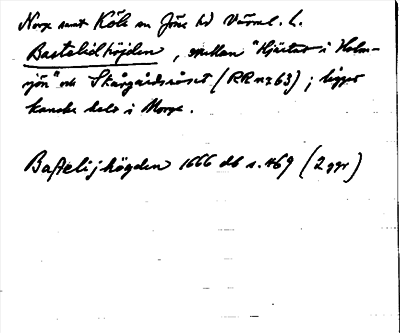 Norge mot Köla sn Jösse hd Värml. l.
Bastelidhöjden, mellan "Hjärtat i Holm-
sjön" och Skårgårdsröset (RR nr 63); ligger
kanske helt i Norge.
Bastelijhögden 1666 db s. 469 (2 ggr)